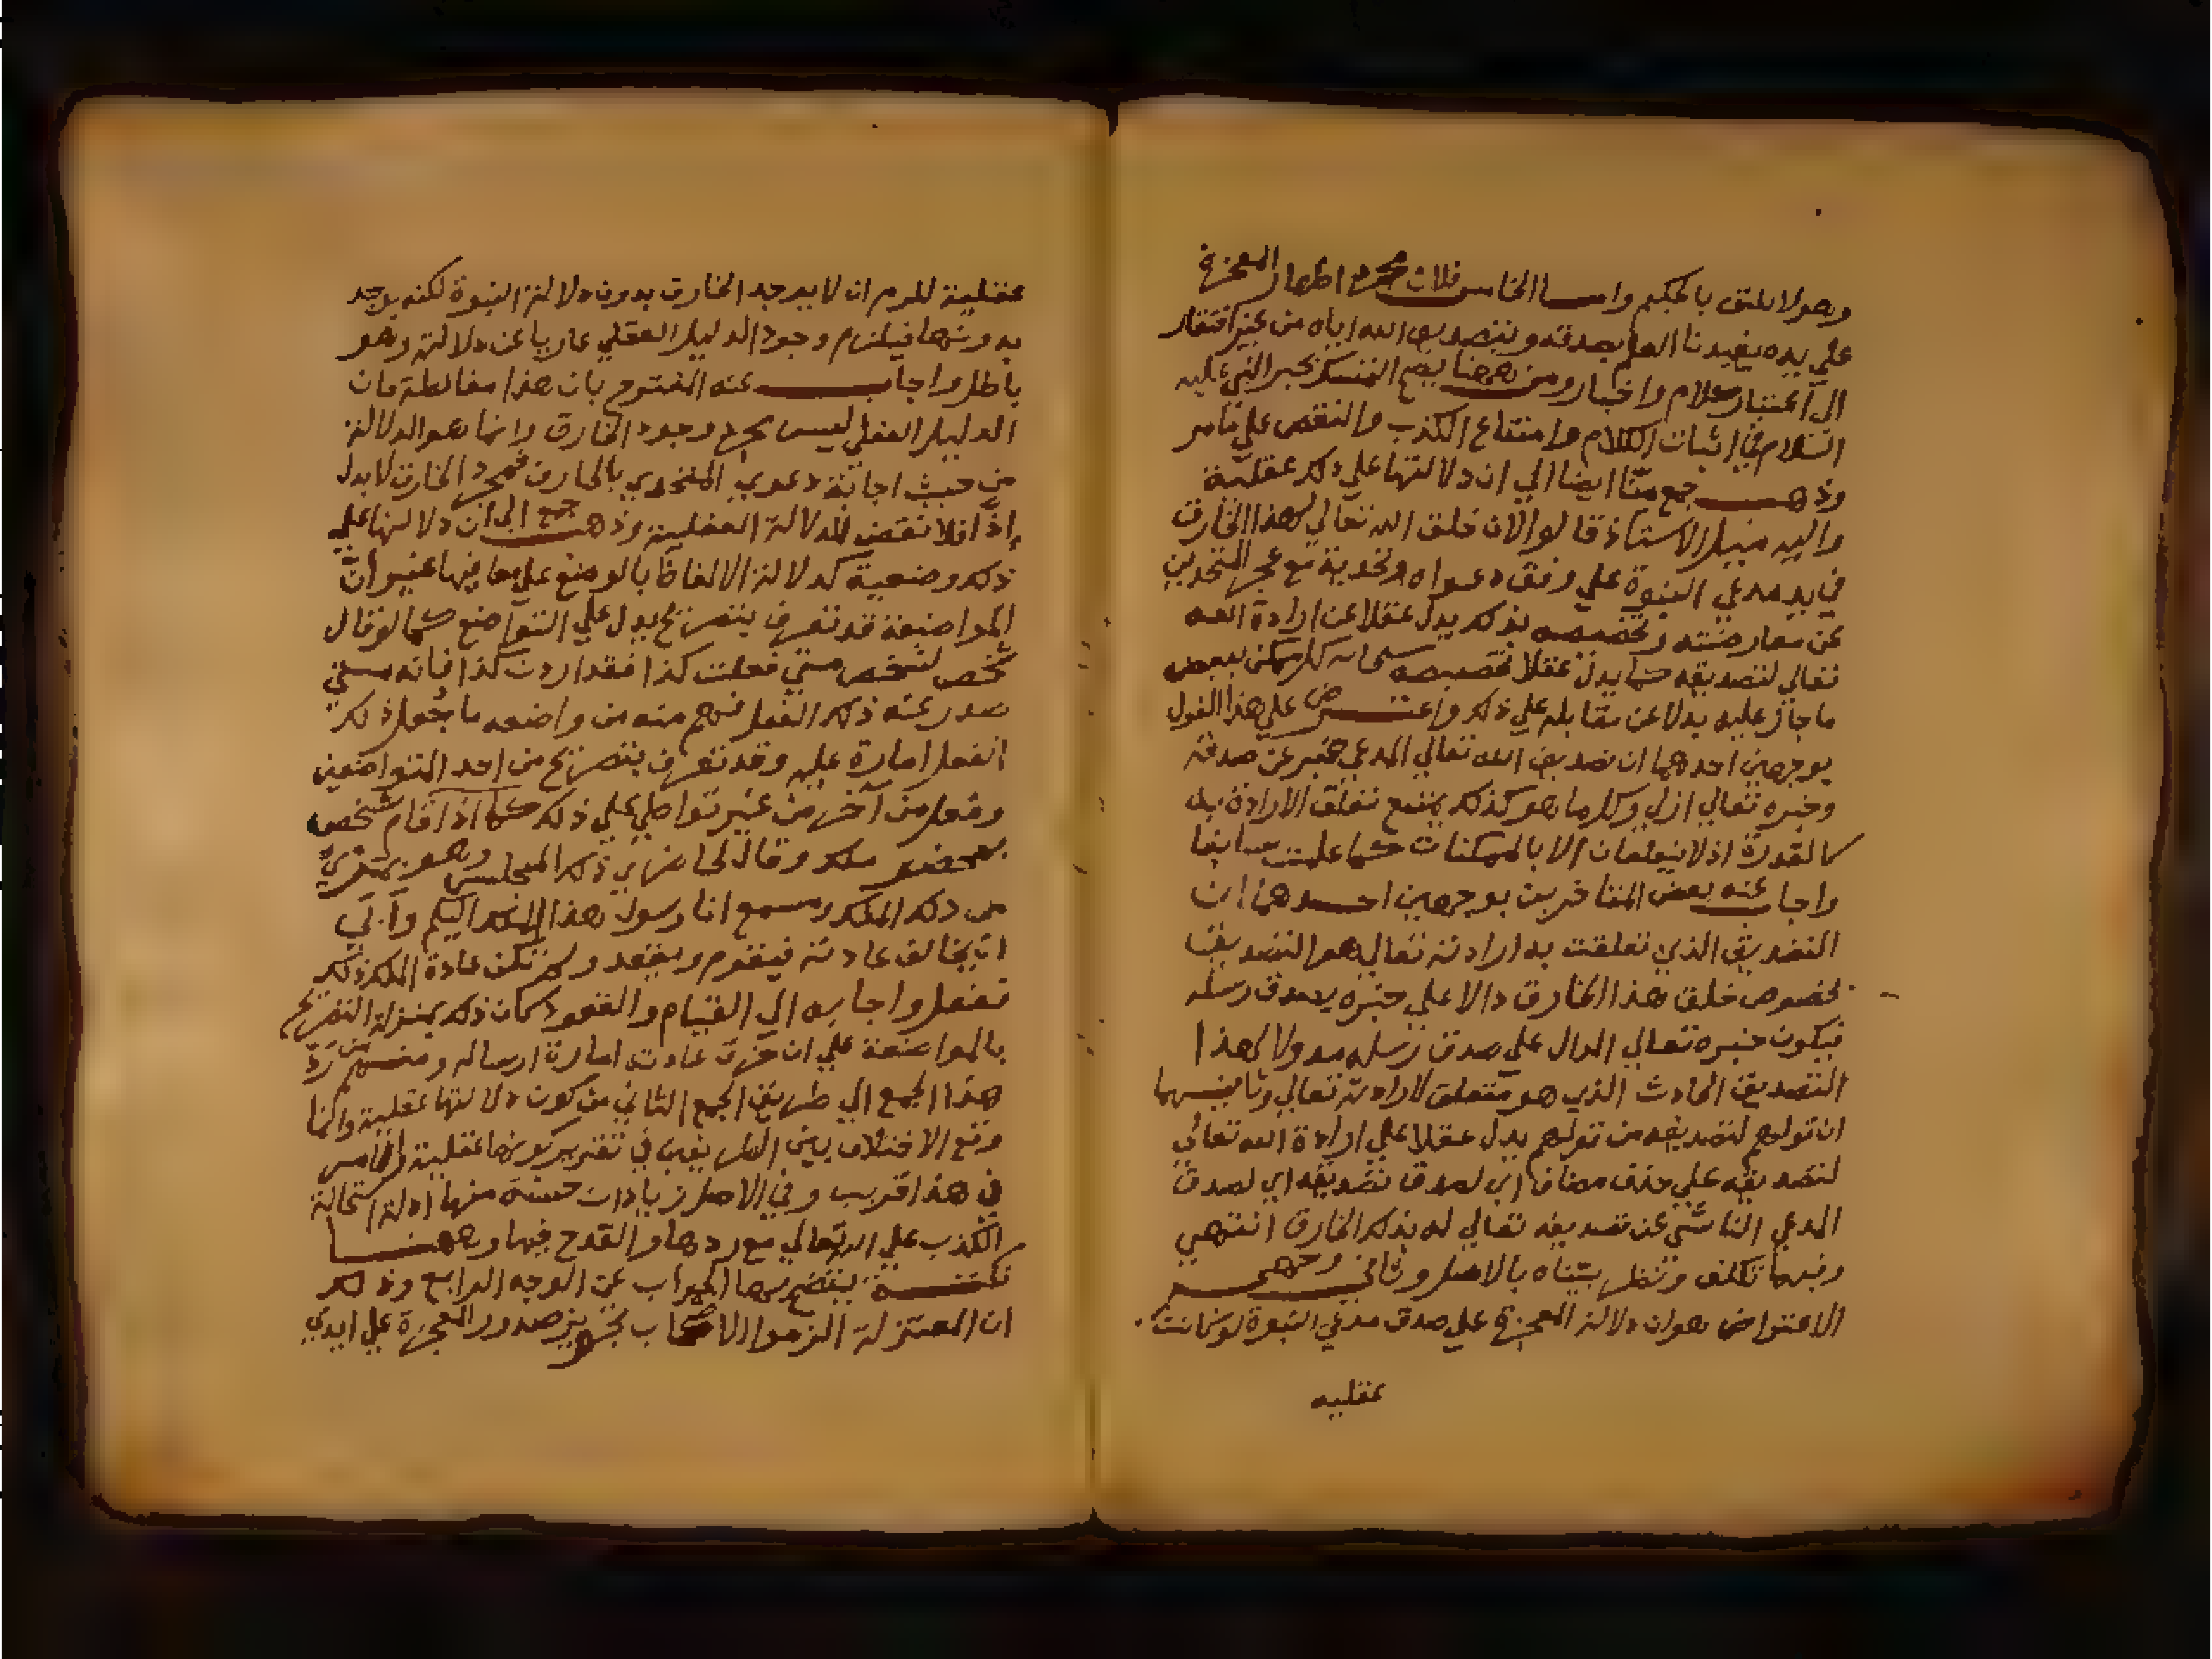 وهو لا يليق بالحكيم واما الخامس فلان مجرد اظهار المعجزة
علي يده يفيدنا العلم بصدقه وبتصديق الله اياه من غير افتقار
الى اعتبار كلام واخبار ومن ههنا يصح التمسك بخبر النبي عليه
السلام في اثبات الكلام وامتناع الكذب والنقص علي مامر
وذهب جمع منا ايضا الي ان دلالتها علي ذلك عقلية
واليه ميل الاستاذ قالوا لان خلق الله تعالي لهذا الخارق
في يد مدعي النبوة علي وفق دعواه وتحديه مع عجز المتحدين
عن معارضته وتخصيصه بذلك يدل عقلا عن ارادة الله
تعالي لتصديقه كما يدل عقلا تخصيصه سبحانه كل ممكن ببعض
ما جاز عليه بدلا عن مقابله علي ذلك واعترض علي هذا القول
بوجهين احدهما ان تصديق الله تعالي المدعي خبر عن صدقه
وخبره تعالي ازلي وكل ما هو كذلك يمتنع تعلق الارادة به
كالقدرة اذ لا يتعلقان الا بالممكنات كما علمت سابقا
واجاب عنه بعض المتاخرين بوجهين احدهما ان
التصديق الذي تعلقت به ارادته تعالي هو التصديق
بخصوص خلق هذا الخارق دالا علي خبره بصدق رسله
فيكون خبره تعالي الدال علي صدق رسله مدلولا لهذا
التصديق الحادث الذي هو متعلق لارادته تعالي وثانيهما
ان قولهم لتصديقه من قولهم يدل عقلا علي ارادة الله تعالي
لتصديقه علي حذف مضاف اي لصدق تصديقه اي لصدق
المدعي الناشي عن تصديقه تعالي له بذلك الخارق انتهي
وفيهما تكلف ونظر بيناه بالاصل وثاني وجهي
الاعتراض هو ان دلالة المعجزة علي صدق مدعي النبوة لو كانت
عقليه
عقلية للزم ان لا يوجد الخارق بدون دلالة النبوة لكنه يوجد
بدونها فيلزم وجود الدليل العقلي عاريا عن دلالته وهو
باطل واجاب عنه المقترح بان هذا مغالطة فان
الدليل العقلي ليس مجرد وجود الخارق وانما هو الدلالة
من حيث اجابة دعوي المتحدي بالخارق فمجرد الخارق لا يدل
إذًا فلا نقض للدلالة العقلية وذهب جمع الى ان دلالتها علي
ذلك وضعية كدلالة الالفاظ بالوضع علي معانيها غير ان
المواضعة قد تعرف بتصريح يدل علي التواضع كما لو قال
شخص لشخص متي فعلت كذا فقد اردت كذا فانه متي
صدر عنه ذلك الفعل فهم منه من واضعه ما يجعل ذلك
الفعل امارة عليه وقد تعرف بتصريح من احد المتواضعين
وفعل من آخر من غير تواطي علي ذلك كما اذا قام شخص
بمحضر ملك وقال لحاضري ذلك المجلس وهو بمرئ
من ذلك الملك ومسمع انا رسول هذا الملك اليكم وآيتي
ان يخالف عادته فيقوم ويقعد ولم تكن عادة الملك ذلك
ففعل واجابه الي القيام والقعود كان ذلك بمنزلة التصريح
بالمواضعة علي ان خرق عادته امارة ارساله ومنهم من رد
هذا الجمع الي طريق الجمع الثاني من كون دلالتها عقلية وانما
وقع الاختلاف بين الطريقين في تقرير كونها عقلية والامر
في هذا قريب وفي الاصل زيادات حسنة منها ادلة استحالة
الكذب علي الله تعالي مع ردها والقدح فيها وههنا
نكتة يتضح بها الجواب عن الوجه الرابع وذلك
ان المعتزلة الزموا الاصحاب تجويز صدور المعجزة علي ايدي